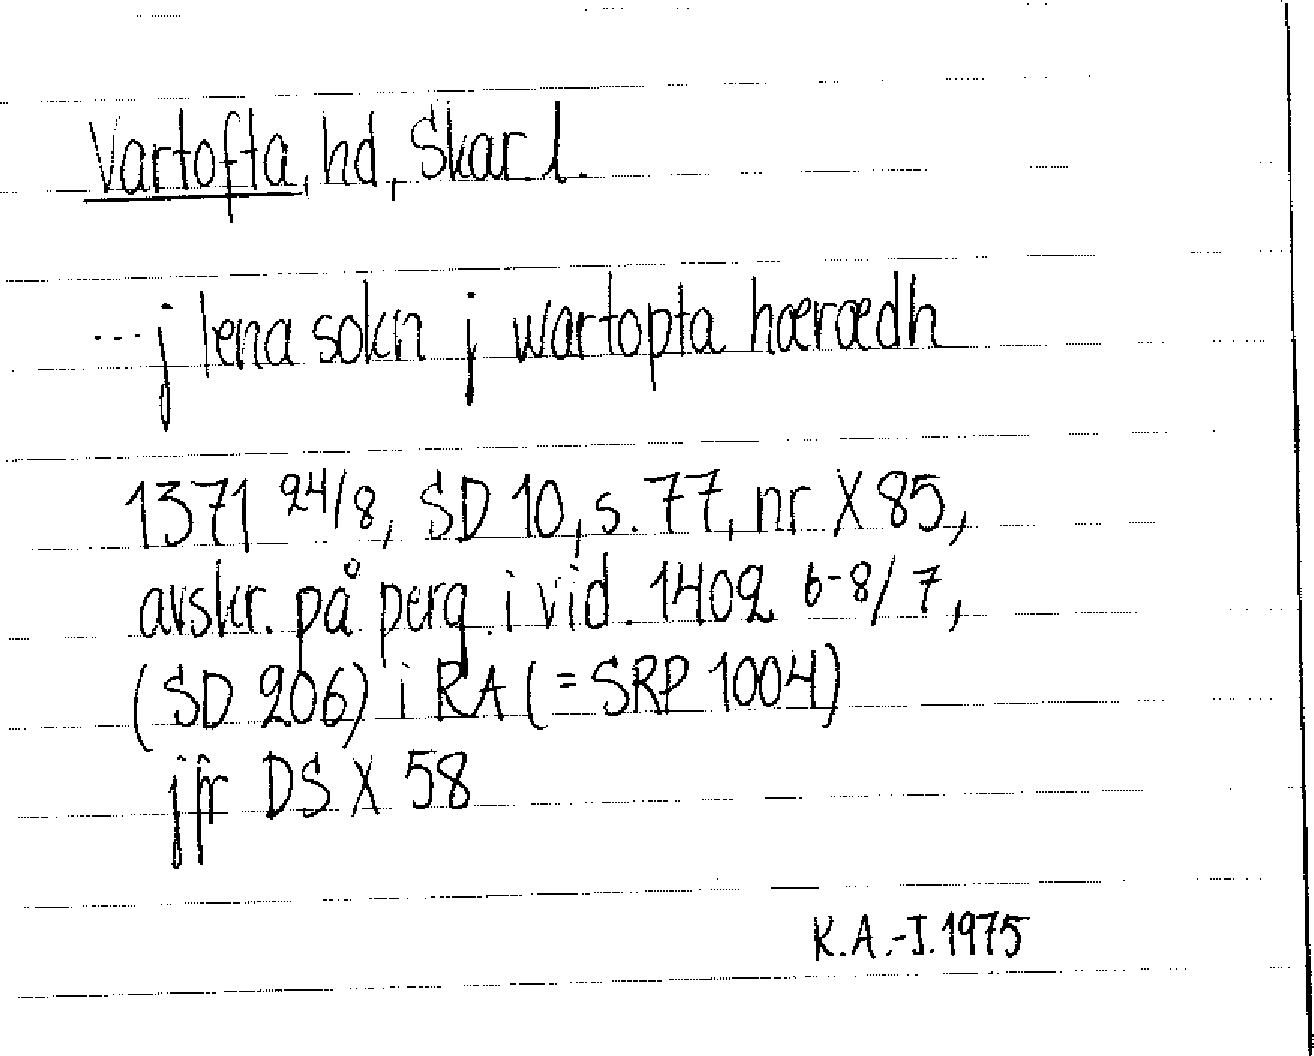 Vartofta, hd, Skar. l.
...j lena sokn j wartopta hærædh
1371 24/8, SD 10, s. 77, nr X 85,
avskr. på perg. i vid. 1402 6-8/7,
(SD 206) i RA (=SRP 1004)
jfr DS X 58
K.A.-J. 1975